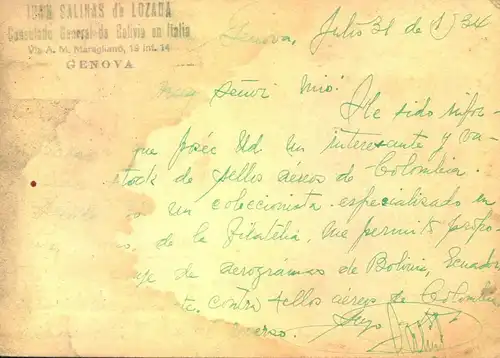 JUAN SALINAS de LOZADA
Consulado General de Bolivia en Italia
Via A. M. Maragliano, 18 int. 14
GENOVA
Genova, Julio 31 de 1934
Señor Miró:
He sido infor-
que posée Ud. un interesante y va-
stock de sellos aéreos de Colombia.
un coleccionista especializado en
de la Filatélia, me permito propo-
de aerogramas de Bolivia, Ecuador
contra sellos aéreos de Colombia
Suyo